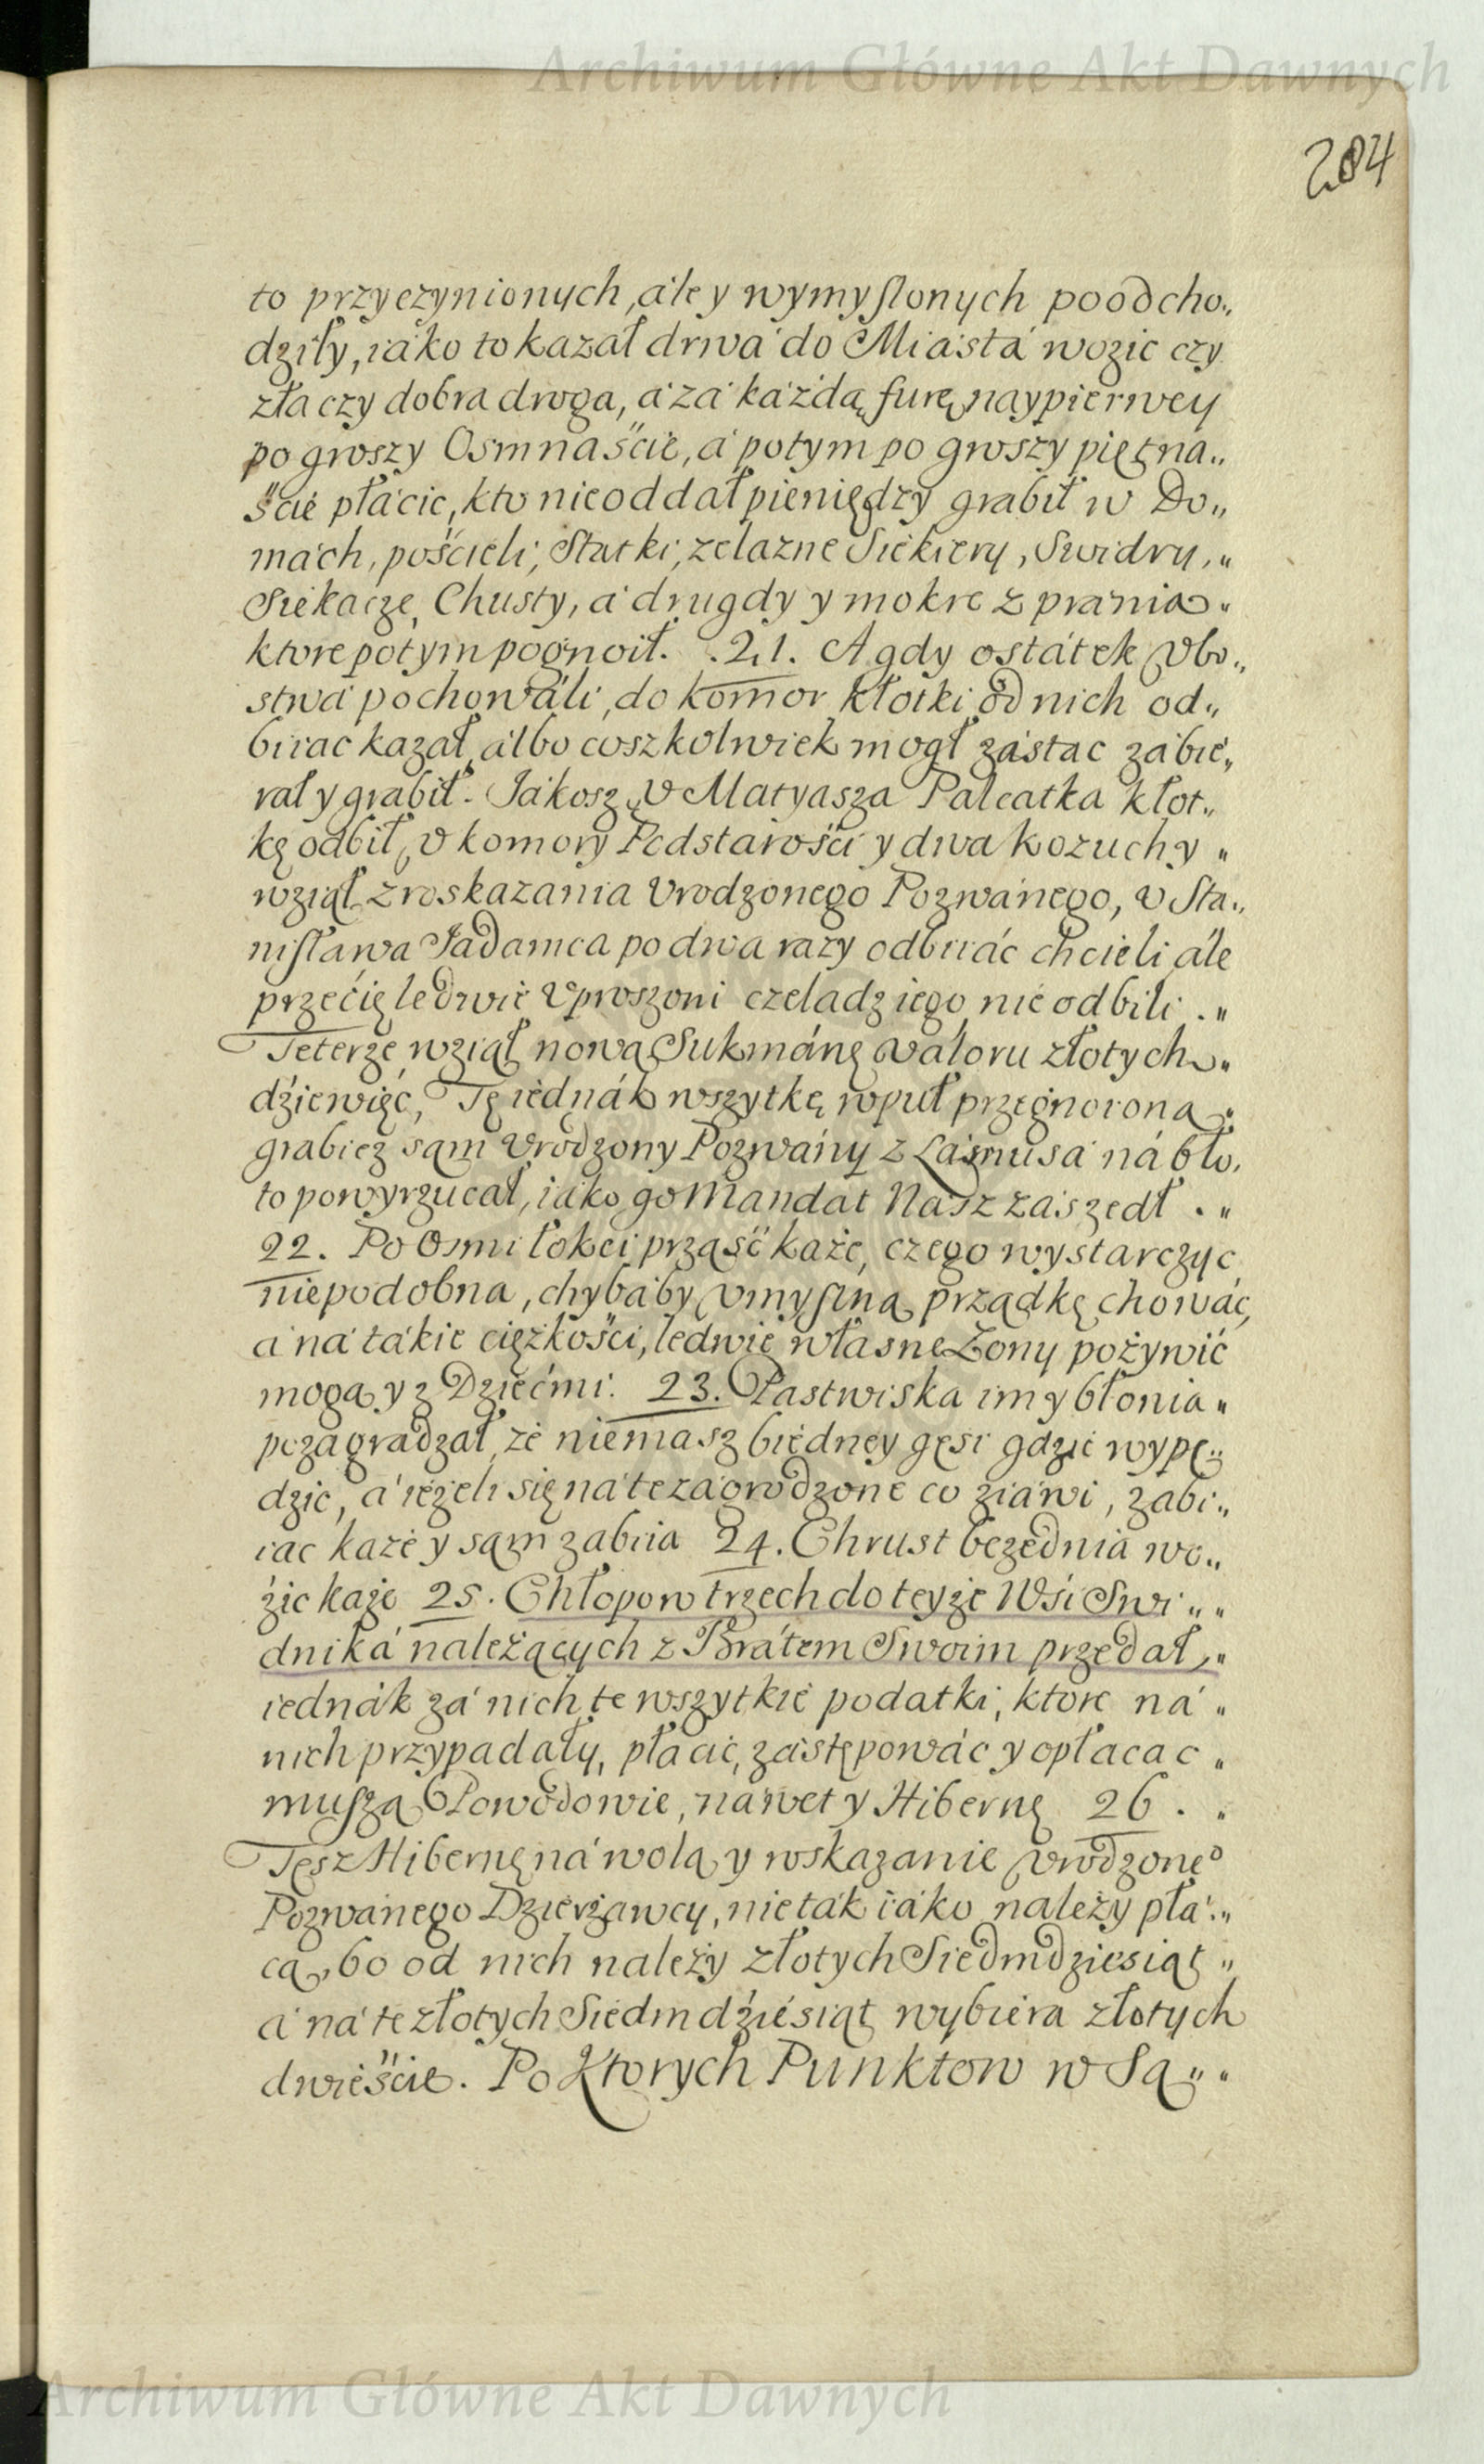 Archiwum Główne Akt Dawnych
204
to przyczynionych, ále y wymyslonych poodcho„
dziły, iáko to kazał drwá do Miástá wozic czy
zła czy dobra droga, á zá káżdą furę naypierwey
po groszy Osmnaście, á potym po groszy piętna„
ście płácic, kto nieoddał pieniędzy grabił w Do„
mách, pościeli, Statki, zelazne Siekiery, Swidry, „
Siekacze, Chusty, á drugdy y mokre z prania „
ktore potym pognoił. .21. A gdy ostátek Vbo„
stwá pochowáli, do komor kłotki od nich od„
biiac kazał, álbo coszkolwiek mogł zástac zábie„
rał y grabił. Jákosz V Matyasza Palcatka kłot„
kę odbił, v komory Podstarości y dwa kozuchy „
wziął z roskazania Vrodzonego Pozwánego, v Sta„
nisława Jadamca po dwa razy odbiiác chcieli, ále
przecię ledwie Vproszoni czeladz iego nie odbili . „
Teterze wziął nową Sukmánę valoru złotych „
dziewięć, Tę iednák wszytkę wpuł przegnoioną „
grabiez sąm Vrodzony Pozwány z Lámusá ná bło„
to powyrzucał, iáko go Mandat Nasz zászedł . „
22. Po Osmi łokci prząść każe, czego wystarczyc
niepodobna, chybáby vmyslną prządkę chowác,
á ná tákie ciężkości, ledwie własne Zony pożywić
mogą y z Dziećmi. 23. Pastwiska im y błonia „
pozagradzał, że niemasz biedney gęsi gdzie wypę„
dzic, á ieżeli się ná te zágrodzone co ziáwi, zabi„
iac każe y sąm zabiia 24. Chrust bezednia wo„
zic każe 25. Chłopow trzech do teyże Wśi Swi„ „
dniká należących z Brátem Swoim przedał, „
iednák zá nich te wszytkie podatki, ktore ná „
nich przypadáły, płácic, zástępowác y opłacac „
muszą Powodowie, náwet y Hibernę 26. „
Tęsz Hibernę ná wolą y wskazanie Vrodzone⁰
Pozwánego Dzierżawcy, nie ták iáko należy płá„
cą, bo od nich należy złotych Siedmdziesiąt „
á ná te złotych Siedmdziesiąt wybiera złotych
dwieście. Po Ktorych Punktow w Są„ „
Archiwum Główne Akt Dawnych